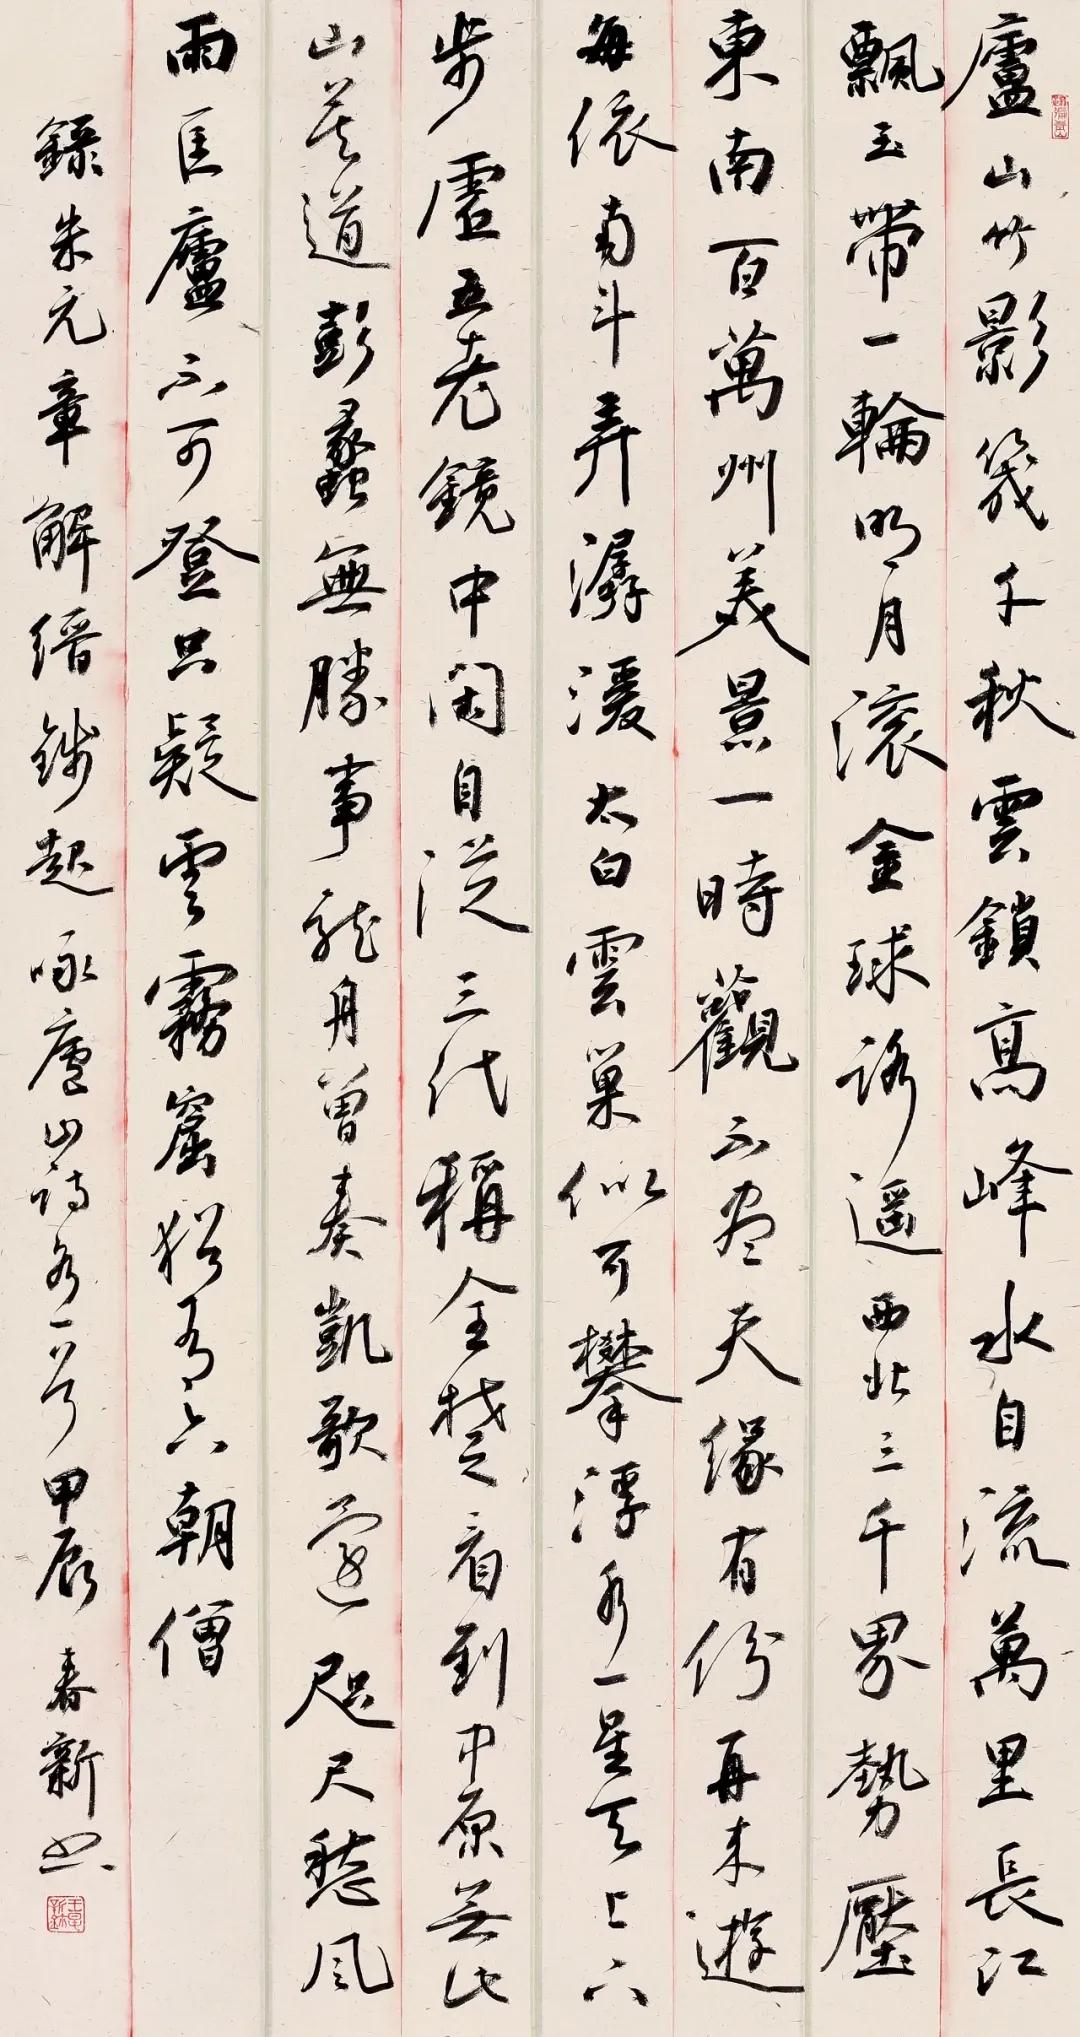 廬山竹影幾千秋雲鎖高峰水自流萬里長江
飄玉帶一輪明月滾金球路遥西北三千界勢壓
東南百萬州美景一時觀不盡天緣有份再來遊
每依南斗弄潺湲太白雲巢似可攀浮水一星天上下
步虛五老鏡中閑自從三代稱全楚看到中原無比
山莫道彭蠡無勝事龍舟曾奏凱歌還咫尺愁風
雨匡廬不可登只疑雲霧窟猶有六朝僧
錄朱元章解缙錢起咏廬山詩各一首甲辰春新書